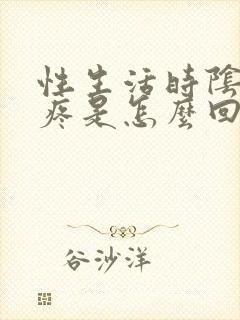 性生活時陰
疼是怎麼回
谷沙洋